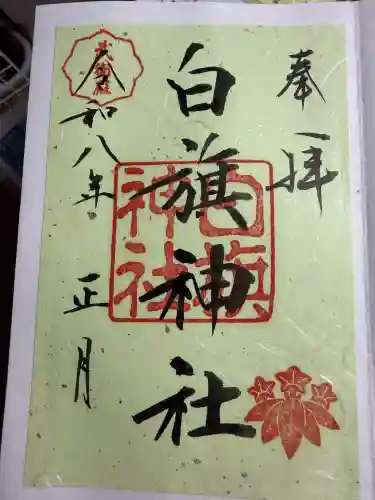 奉拝
白旗神社
白旗神社
令和八年
正月